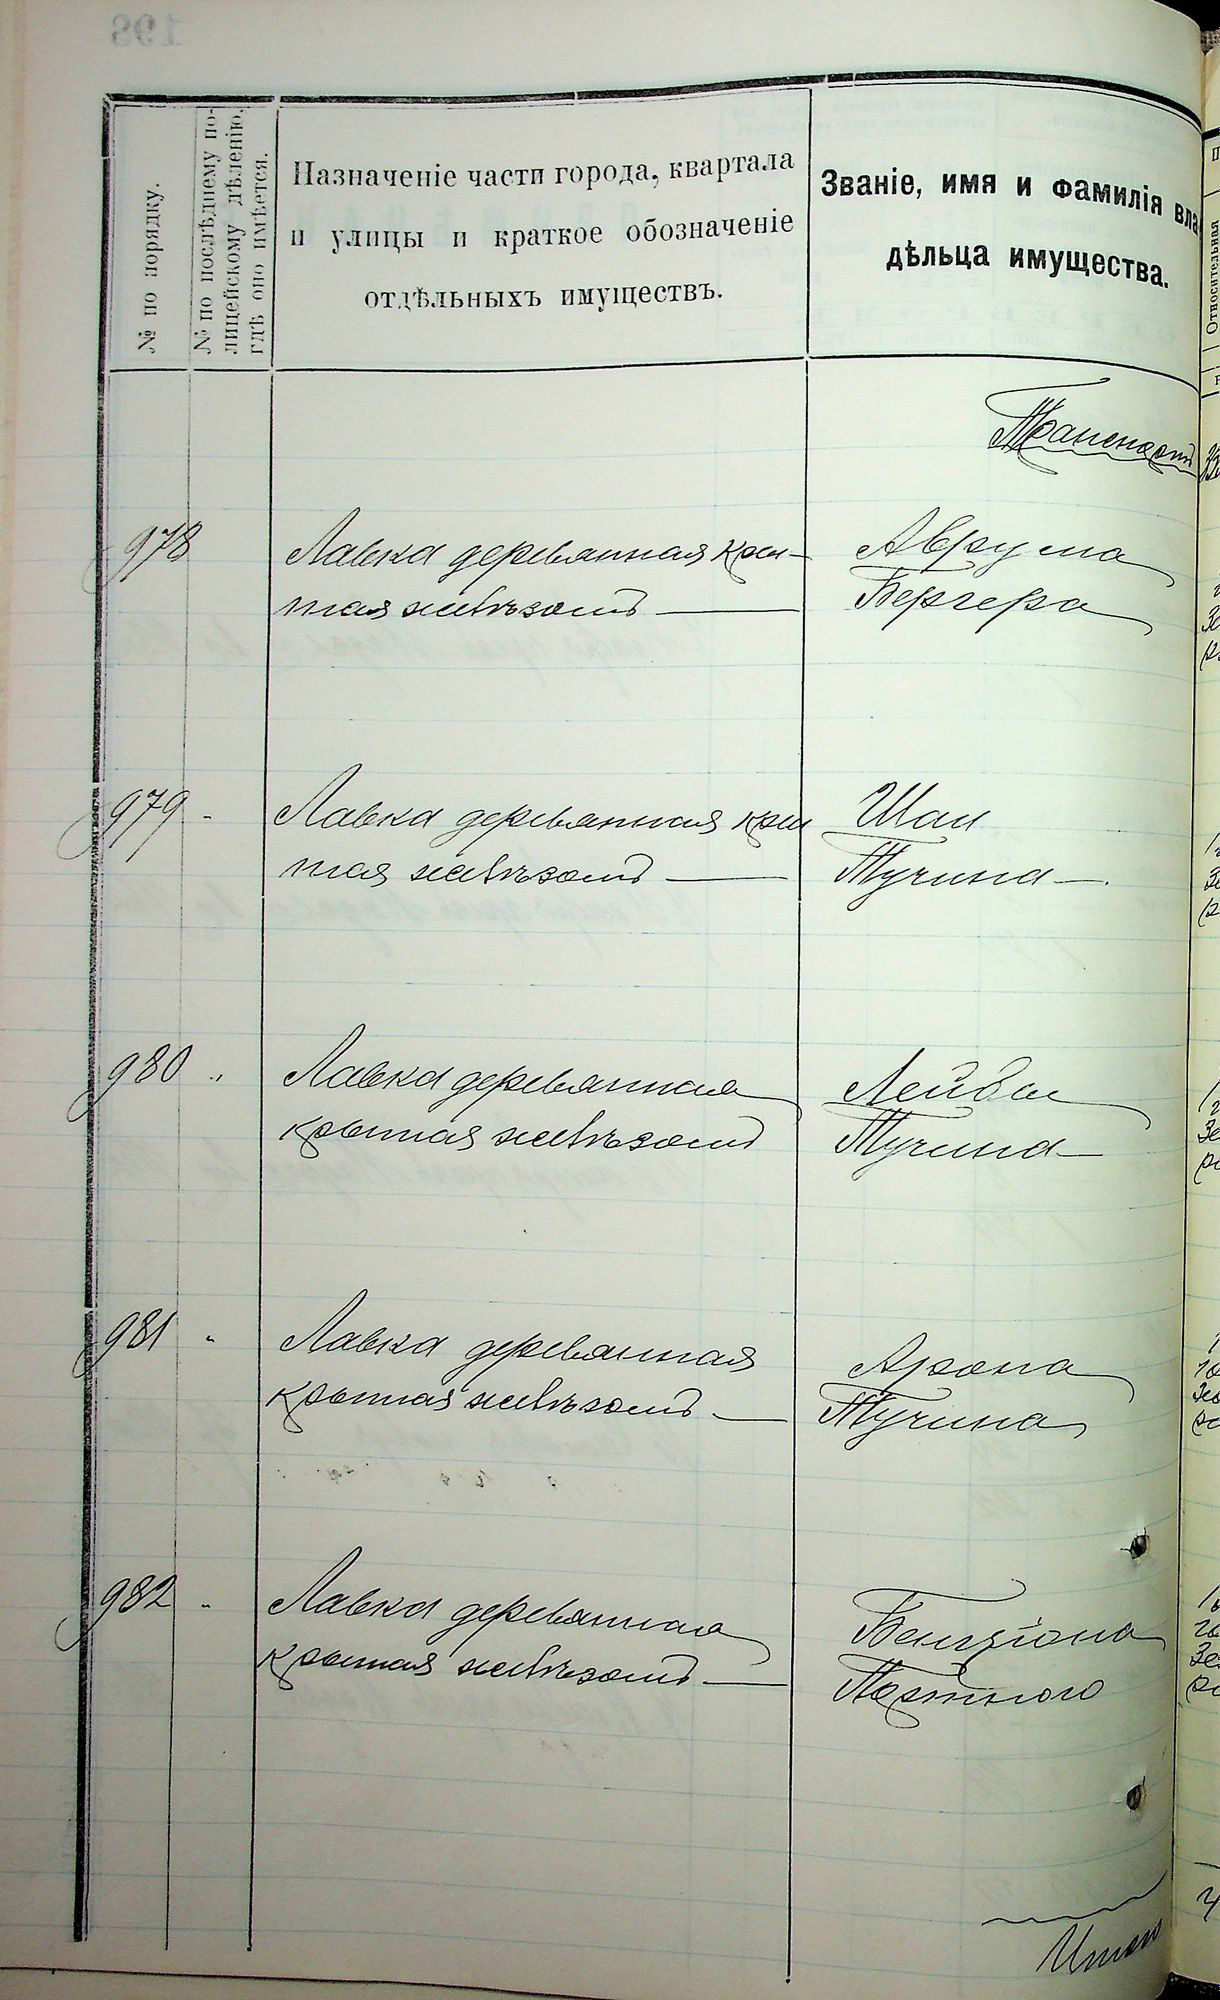 № по порядку.
№ по послѣднему по-
лицейскому дѣленію,
гдѣ оно имѣется.
Назначеніе части города, квартала
и улицы и краткое обозначеніе
отдѣльныхъ имуществъ.
Званіе, имя и фамилія вла
дѣльца имущества.
Транспортъ
978
Лавка деревянная кры-
тая желѣзомъ
Аврума
Бергера
979 "
Лавка деревянная кры
тая желѣзомъ
Шаи
Тучина
980 "
Лавка деревянная
крытая желѣзомъ
Лейбы
Тучина
981 "
Лавка деревянная
крытая желѣзомъ
Арона
Тучина
982 "
Лавка деревянная
крытая желѣзомъ
Бенціона
Портного
Итого